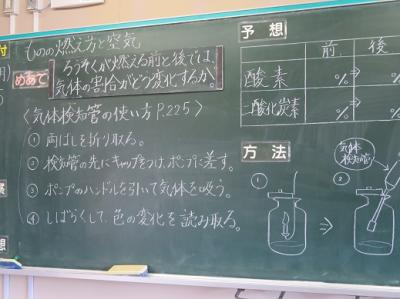 ものの燃え方と空気
めあて
ろうそくが燃える前と後では、
気体の割合がどう変化するか。
〈気体検知管の使い方 P.225〉
① 両はしを折り取る。
② 検知管の先にキャップをつけ、ポンプに差す。
③ ポンプのハンドルを引いて気体を吸う。
④ しばらくして、色の変化を読み取る。
予想
前 後
酸素 % ⇒ %
二酸化炭素 % ⇒ %
方法
① ②
気体
検知管
想